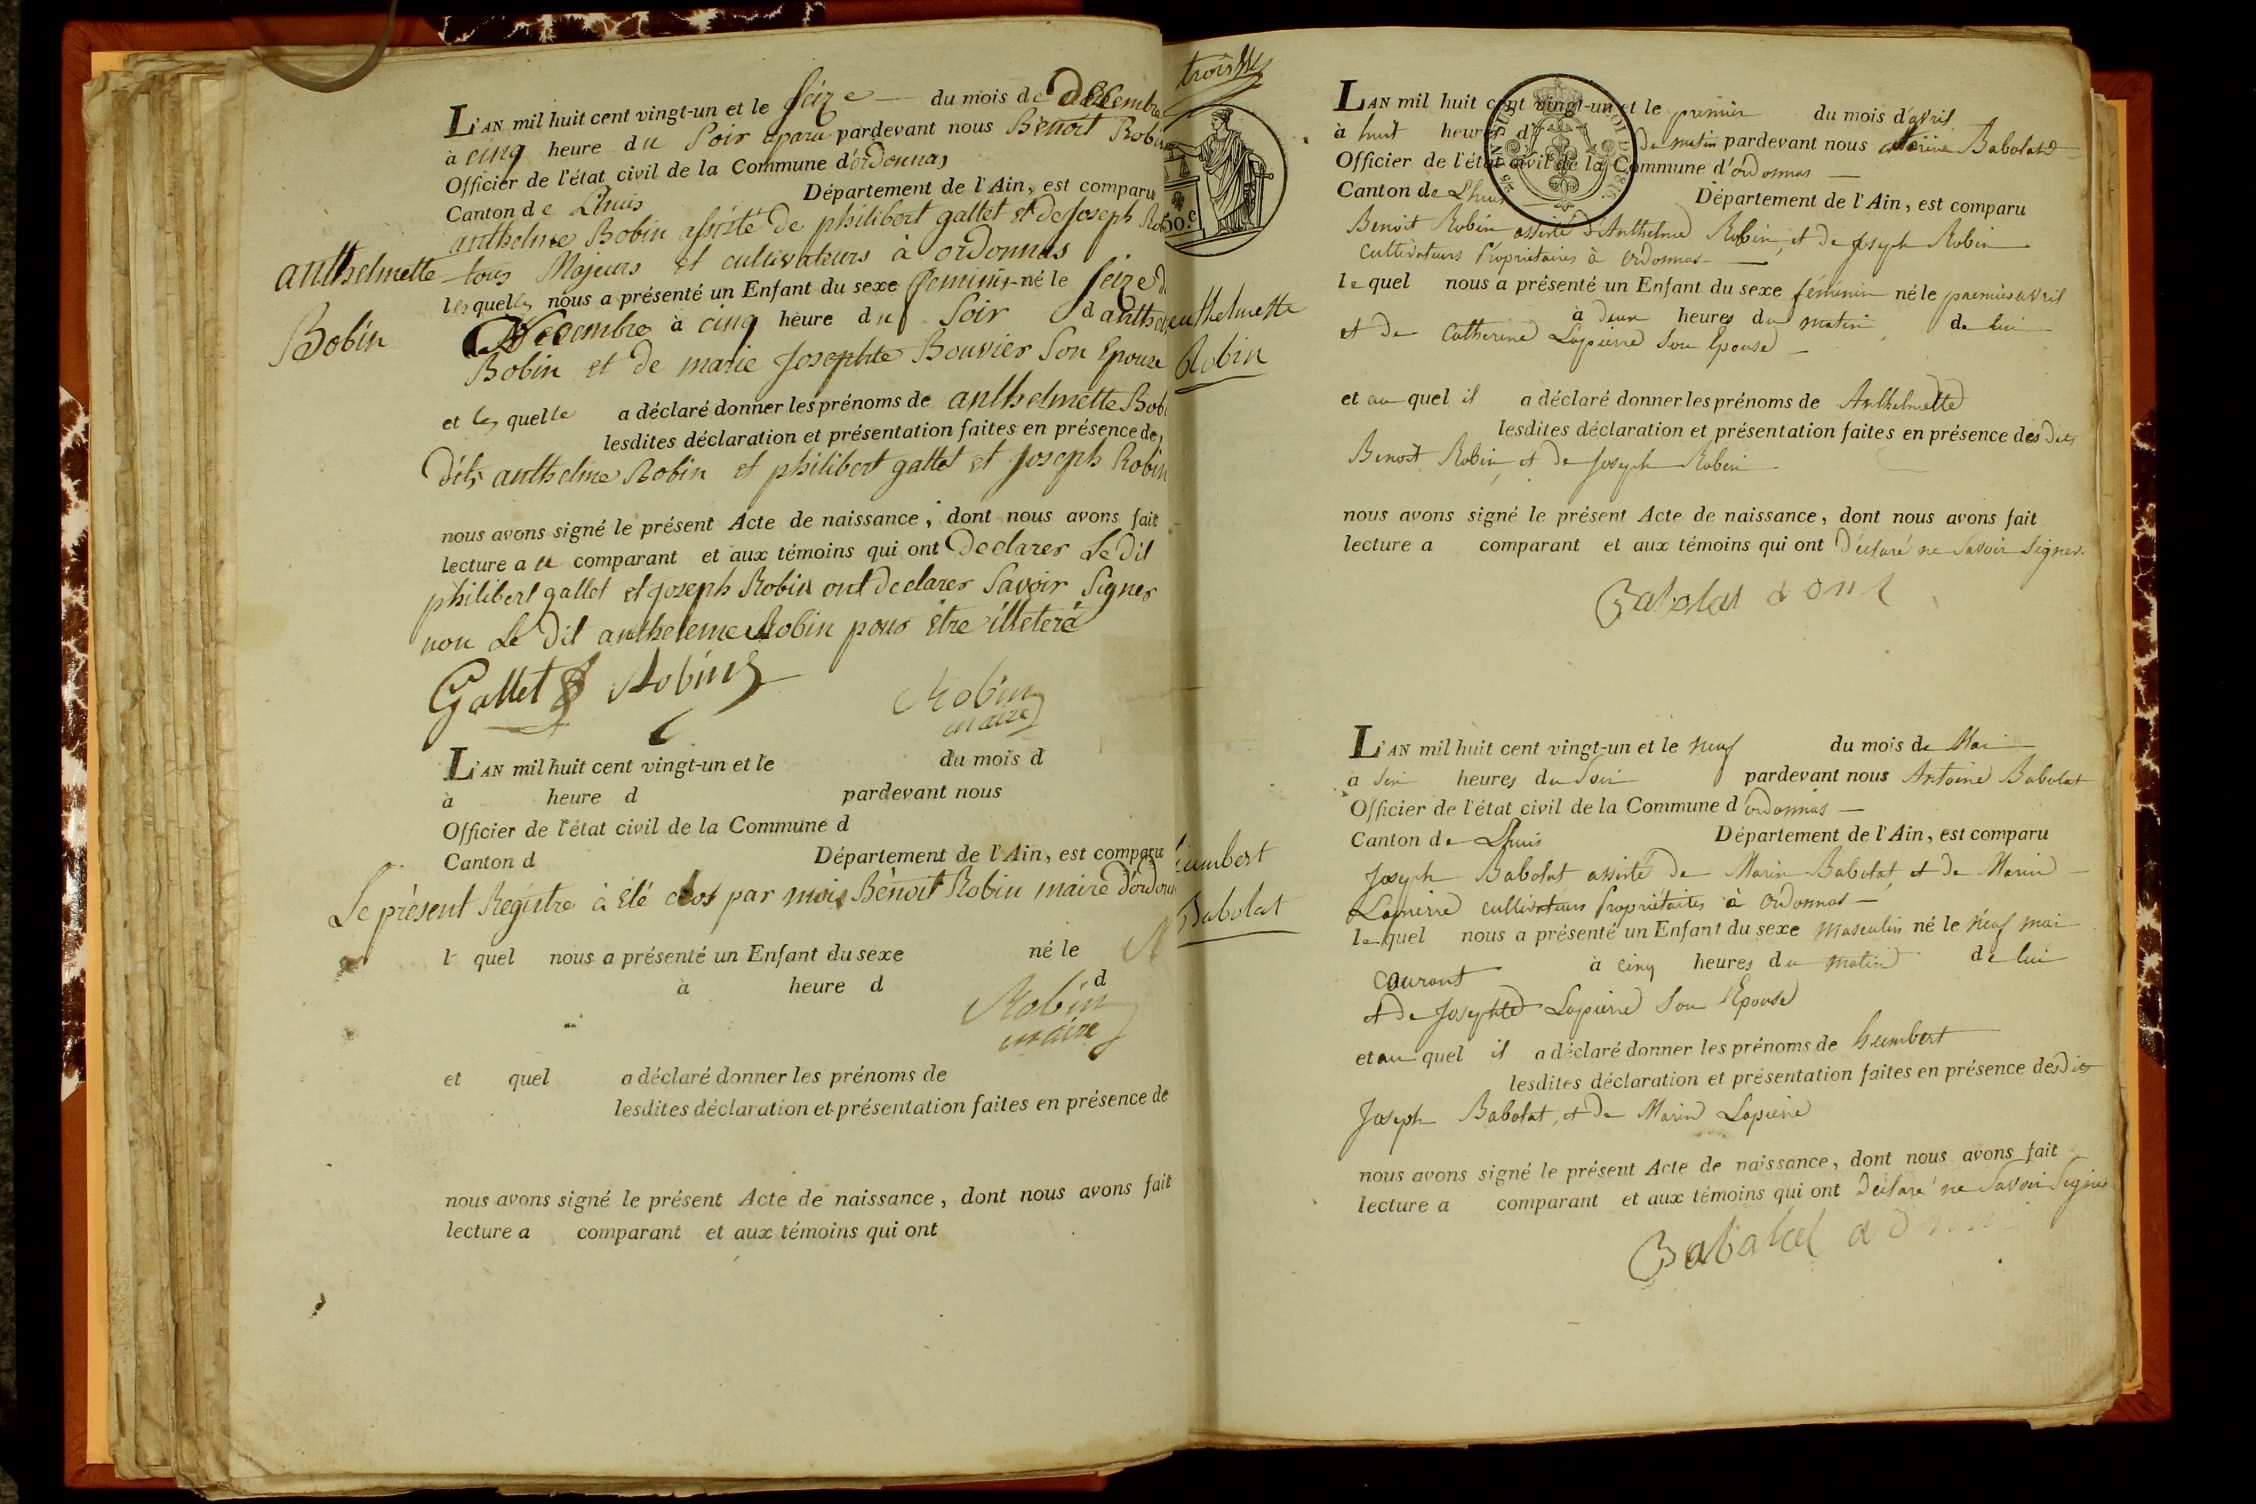 L'AN mil huit cent vingt-un et le seize du mois de Decembre
à cinq heure du Soir aparu pardevant nous Benoit Robin
Officier de l'état civil de la Commune d'ordonnas
Canton de Lhuis Département de l'Ain, est comparu
anthelme Robin assisté de philibert gallet et de Joseph Rob
tous Majeurs et cultivateurs à ordonnas
lesquelles nous a présenté un Enfant du sexe feminin né le seize d
Decembre à cinq heure du Soir d anthe
Robin et de marie Josephte Bouvier Son Epouse
et les quelle a déclaré donner les prénoms de anthelmette Rob
lesdites déclaration et présentation faites en présence des
dits anthelme Robin et philibert gallet et Joseph Robin
nous avons signé le présent Acte de naissance, dont nous avons fait
lecture a u comparant et aux témoins qui ont Declarer Le Dit
philibert gallet et Joseph Robin ont declarer Savoir Signer
non Le Dit antheleme Robin pour être illeteré
Gallet Robin
Robin
maire
anthelmette
Robin
L'AN mil huit cent vingt-un et le du mois d
à heure d pardevant nous
Officier de l'état civil de la Commune d
Canton d Département de l'Ain, est comparu
Le présent Régistre à été clos par mois Bénoit Robin maire d'ordon
l quel nous a présenté un Enfant du sexe né le
à heure d d
Robin
maire
et quel a déclaré donner les prénoms de
lesdites déclaration et présentation faites en présence de
nous avons signé le présent Acte de naissance, dont nous avons fait
lecture a comparant et aux témoins qui ont
trois
50.c
anthelmette
Robin
L'AN mil huit cent vingt-un et le premier du mois d'avril
à huit heures du matin pardevant nous Babolat
Officier de l'état civil de la Commune d'ordonnas
Canton de Lhuis Département de l'Ain, est comparu
Benoit Robin assisté d'Anthelme Robin, et de Joseph Robin
cultivateurs Propriétaires à ordonnas
le quel nous a présenté un Enfant du sexe féminin né le premier avril
à deux heures du matin de lui
et de Catherine Lapierre Son Epouse
et au quel il a déclaré donner les prénoms de Anthelmette
lesdites déclaration et présentation faites en présence des dits
Benoit Robin, et de Joseph Robin
nous avons signé le présent Acte de naissance, dont nous avons fait
lecture a comparant et aux témoins qui ont Déclaré ne Savoir Signer.
Babolat
humbert
Babolat
L'AN mil huit cent vingt-un et le neuf du mois de Mai
à Six heures du Soir pardevant nous Antoine Babolat
Officier de l'état civil de la Commune d'ordonnas
Canton de Lhuis Département de l'Ain, est comparu
Joseph Babolat assisté de Marin Babolat, et de Marin
Lapierre cultivateurs Propriétaires à Ordonnas
le quel nous a présenté un Enfant du sexe masculin né le neuf mai
courant à cinq heures du matin de lui
et de Josephte Lapierre Son Epouse
et au quel il a déclaré donner les prénoms de humbert
lesdites déclaration et présentation faites en présence des Dits
Joseph Babolat, et de Marin Lapierre
nous avons signé le présent Acte de naissance, dont nous avons fait
lecture a comparant et aux témoins qui ont Déclaré ne Savoir Signer
Babalat